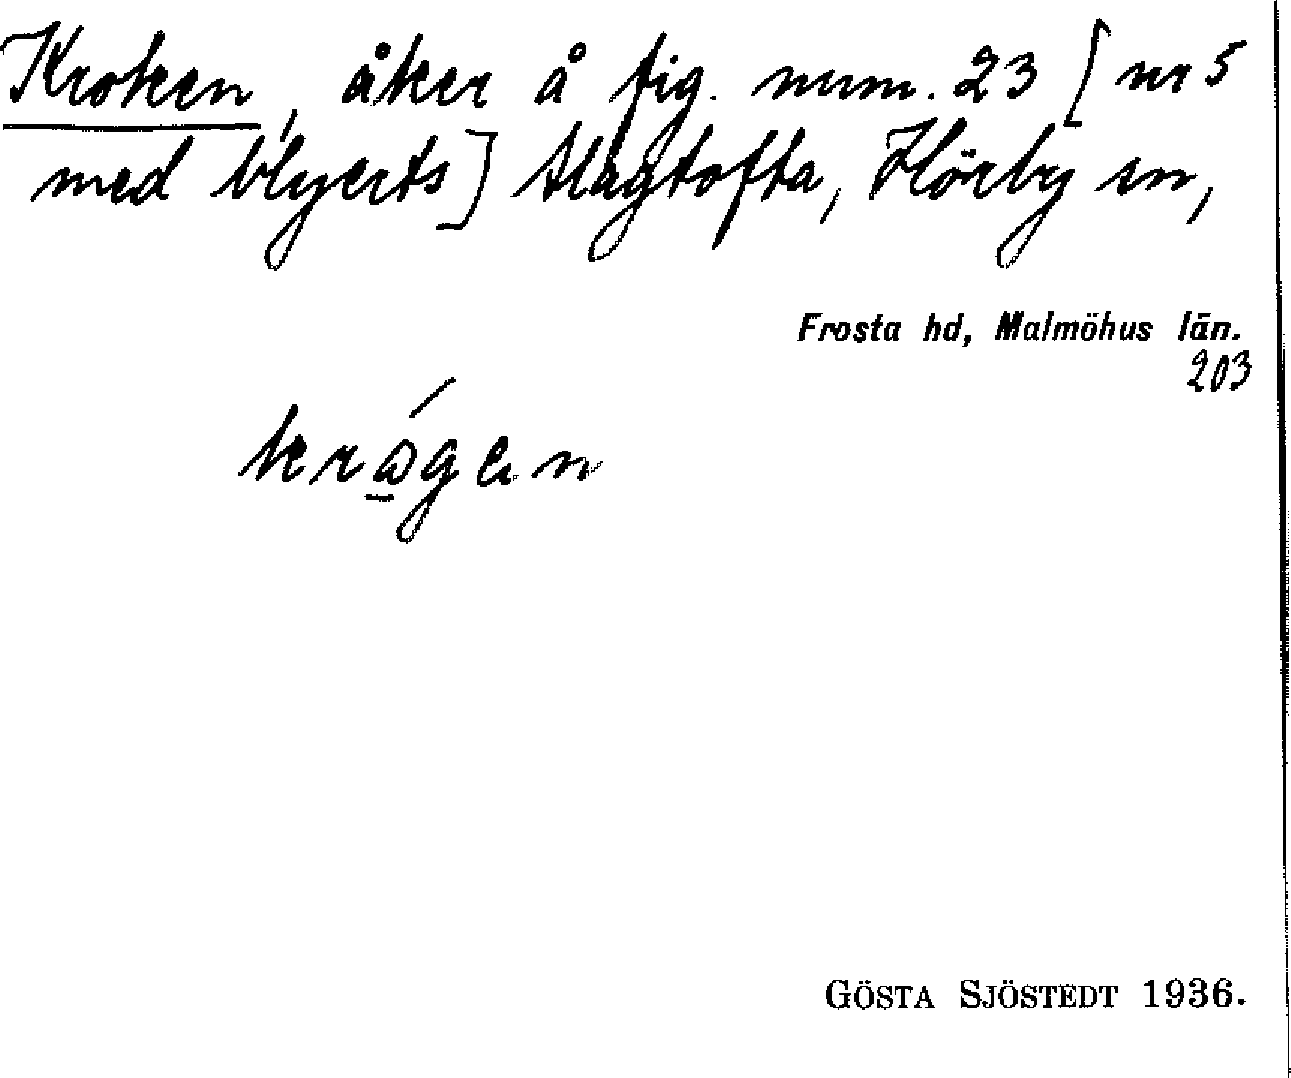 Kroken, åker å fig. num. 23 [nr 5
med blyerts] Slagtofta, Hörby sn,
Frosta hd, Malmöhus län.
203
GÖSTA SJÖSTEDT 1936.